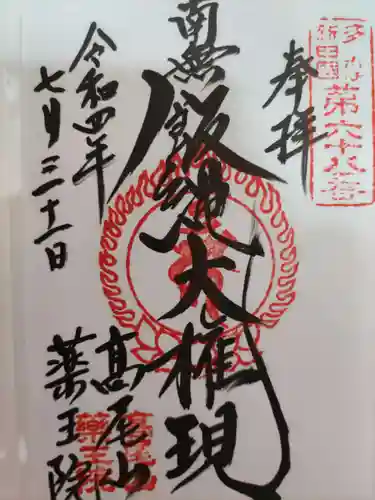 多摩
新四国
第六十八番
奉拝
南無飯縄大権現
高尾山
薬王院
令和四年
七月三十一日